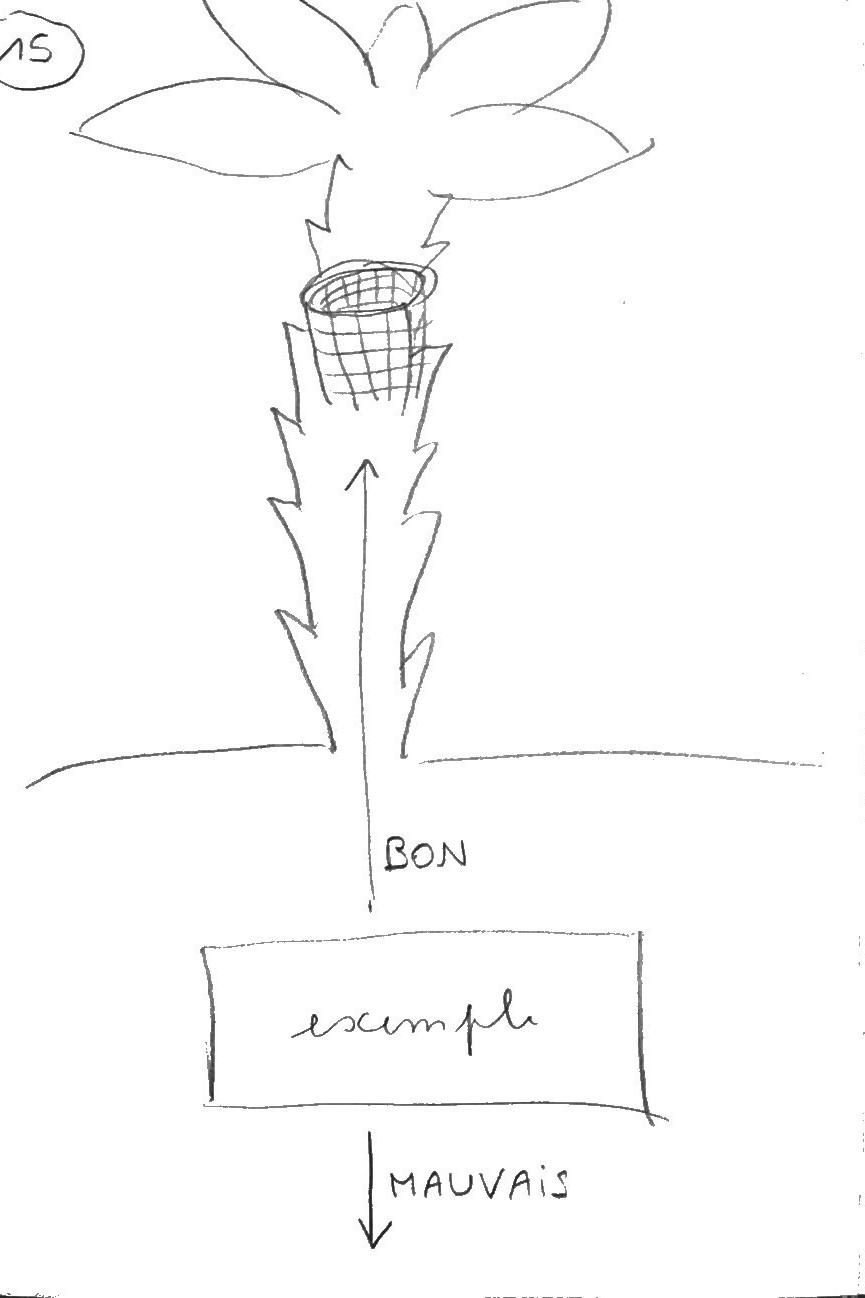 15
BON
exemple
MAUVAiS